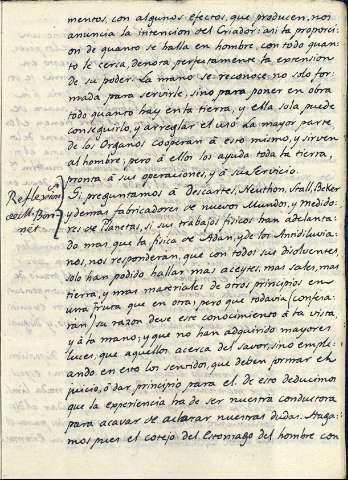 mentos, con algunos efectos, que producen, nos
anuncia la intencion del Criador: asi la proporci-
on de quanto se halla en hombre, con todo quan-
to le cerca, denota perfectamente la extension
de su poder. La mano se reconoce, no solo for-
mada para servirle, sino para poner en obra
todo quanto hay en la tierra, y ella sola puede
conseguirlo, y arreglar el uso. La mayor parte
de los Organos cooperan à esto mismo, y sirven
al hombre; pero à ellos los ayuda toda la tierra,
pronta à sus operaciones, y à su servicio.
Reflexion
de Mr. Bon-
net
Si preguntamos à Descartes, Neuthon, Stall, Beker
y demas fabricadores de nuevos Mundos, y Medido-
res de Planetas, si sus trabajos fisicos han adelanta-
do mas que la fisica de Adan, y de los Antidiluvia-
nos, nos responderan, que con todos sus disolventes,
solo han podido hallar mas aceytes, mas sales, mas
tierra, y mas materiales de otros principios en
una fruta que en otra; pero que todavia (confesa-
ran) su razon deve este conocimiento à la vista,
y à la mano; y que no han adquirido mayores
luces, que aquellos acerca del savor, sino emple-
ando en ello los sentidos, que deben formar el
juicio, ò dar principio para el. De esto deducimos
que la experiencia ha de ser nuestra conductora
para acavar de aclarar nuestras dudas. Haga-
mos pues el cotejo del Estomago del hombre con